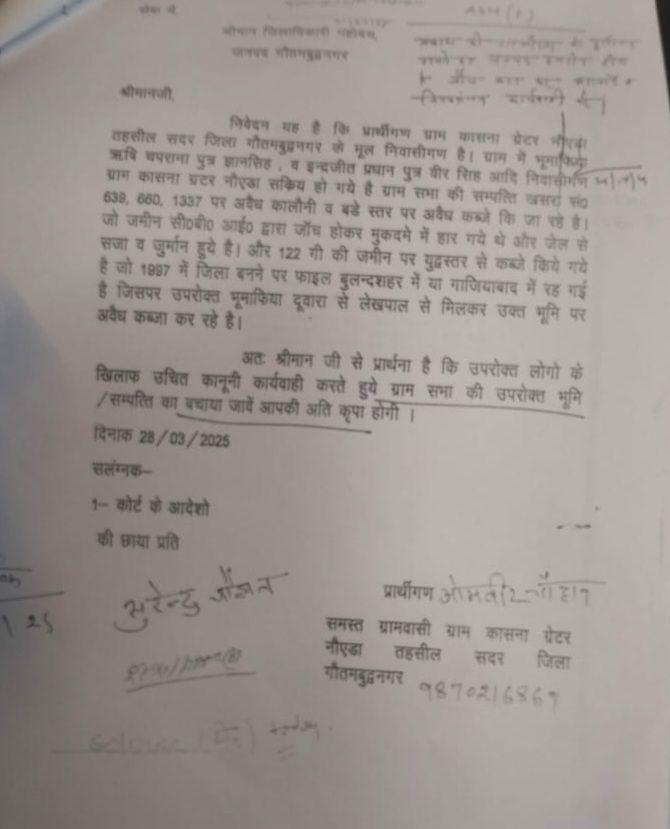 सेवा में,
श्रीमान जिलाधिकारी महोदय,
जनपद गौतमबुद्धनगर
ADM (F)
श्रीमानजी,
निवेदन यह है कि प्रार्थीगण ग्राम कासना ग्रेटर नौएडा
तहसील सदर जिला गौतमबुद्धनगर के मूल निवासीगण है। ग्राम में भूमाफिया
ऋषि चपराना पुत्र ज्ञानसिह , व इन्द्रजीत प्रधान पुत्र वीर सिह आदि निवासीगण
ग्राम कासना ग्रटर नौएडा सकिय हो गये है ग्राम सभा की सम्पत्ति खसरा सं0
639, 660, 1337 पर अवैध कालौनी व बडे स्तर पर अवैध कब्जे कि जा रहे है।
जो जमीन सी0बी0 आई0 द्वारा जॉच होकर मुकदमे में हार गये थे और जेल से
सजा व जुर्मान हुये है। और 122 गी की जमीन पर युद्वस्तर से कब्जे किये गये
है जो 1997 में जिला बनने पर फाइल बुलन्दशहर में या गाजियाबाद में रह गई
है जिसपर उपरोक्त भूमाफिया दूवारा से लेखपाल से मिलकर उक्त भूमि पर
अवैध कब्जा कर रहे है।
अतः श्रीमान जी से प्रार्थना है कि उपरोक्त लोगो के
खिलाफ उचित कानूनी कार्यवाही करते हुये ग्राम सभा की उपरोक्त भूमि
/सम्पत्ति का बचाया जावें आपकी अति कृपा होगी ।
दिनाक 28/03/2025
सलंग्नक–
1– कोर्ट के आदेशो
की छाया प्रति
प्रार्थीगण
समस्त ग्रामवासी ग्राम कासना ग्रेटर
नौएडा तहसील सदर जिला
गौतमबुद्वनगर 9870216869